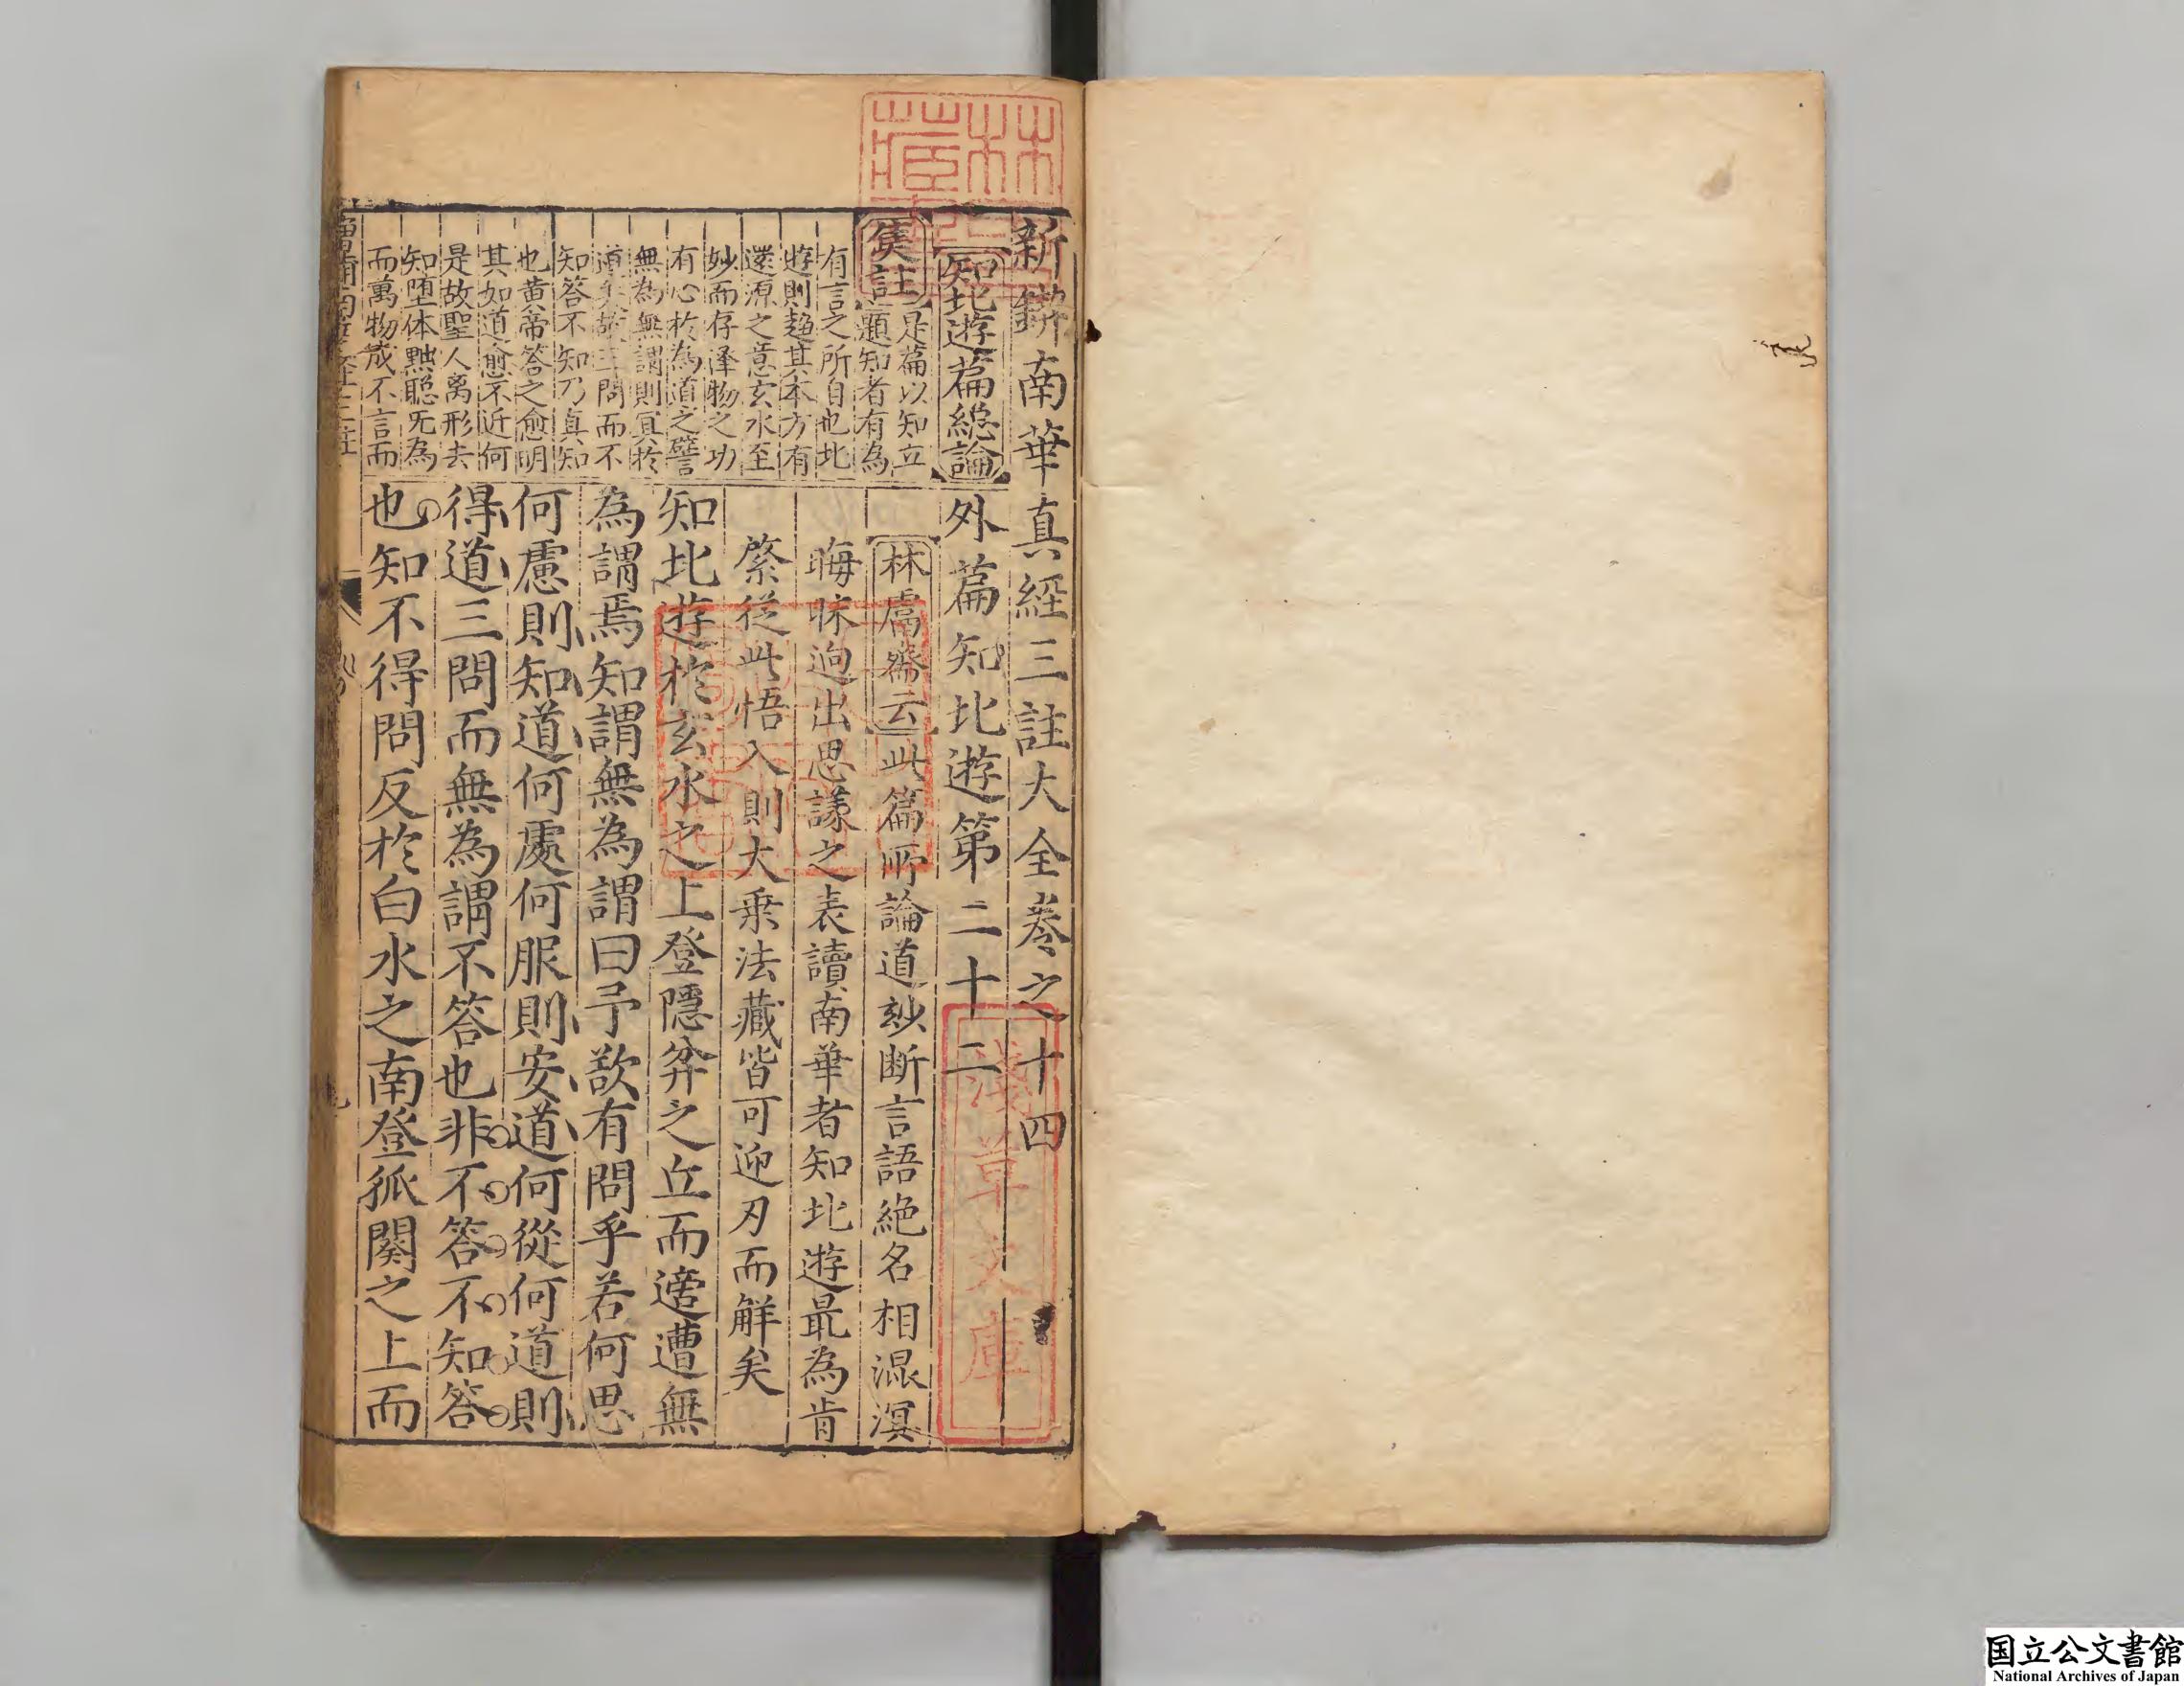 新鍥南華真經三註大全卷之十四
知北遊篇總論
外篇知北遊第二十二
雋註
是篇以知立
題知者有為
有言之所自也北
遊則趨其本方有
還源之意玄水至
妙而存澤物之功
有心於為道之譬
無為無謂則冥於
道矣故三問而不
知答不知乃真知
也黄帝答之愈明
其如道愈不近何
是故聖人离形去
知堕体黜聪无為
而萬物成不言而
林鬳齋云此篇所論道妙断言語絶名相混溟
晦昧逈出思議之表讀南華者知北遊最為肯
綮從此悟入則大乗法藏皆可迎刃而觧矣
知北遊於玄水之上登隱弅之丘而適遭無
為謂焉知謂無為謂曰予欲有問乎若何思
何慮則知道何處何服則安道何從何道則
得道三問而無為謂不答也非不答不知答
也知不得問反於白水之南登狐闋之上而
林
藏
淺草文庫
国立公文書館
National Archives of Japan